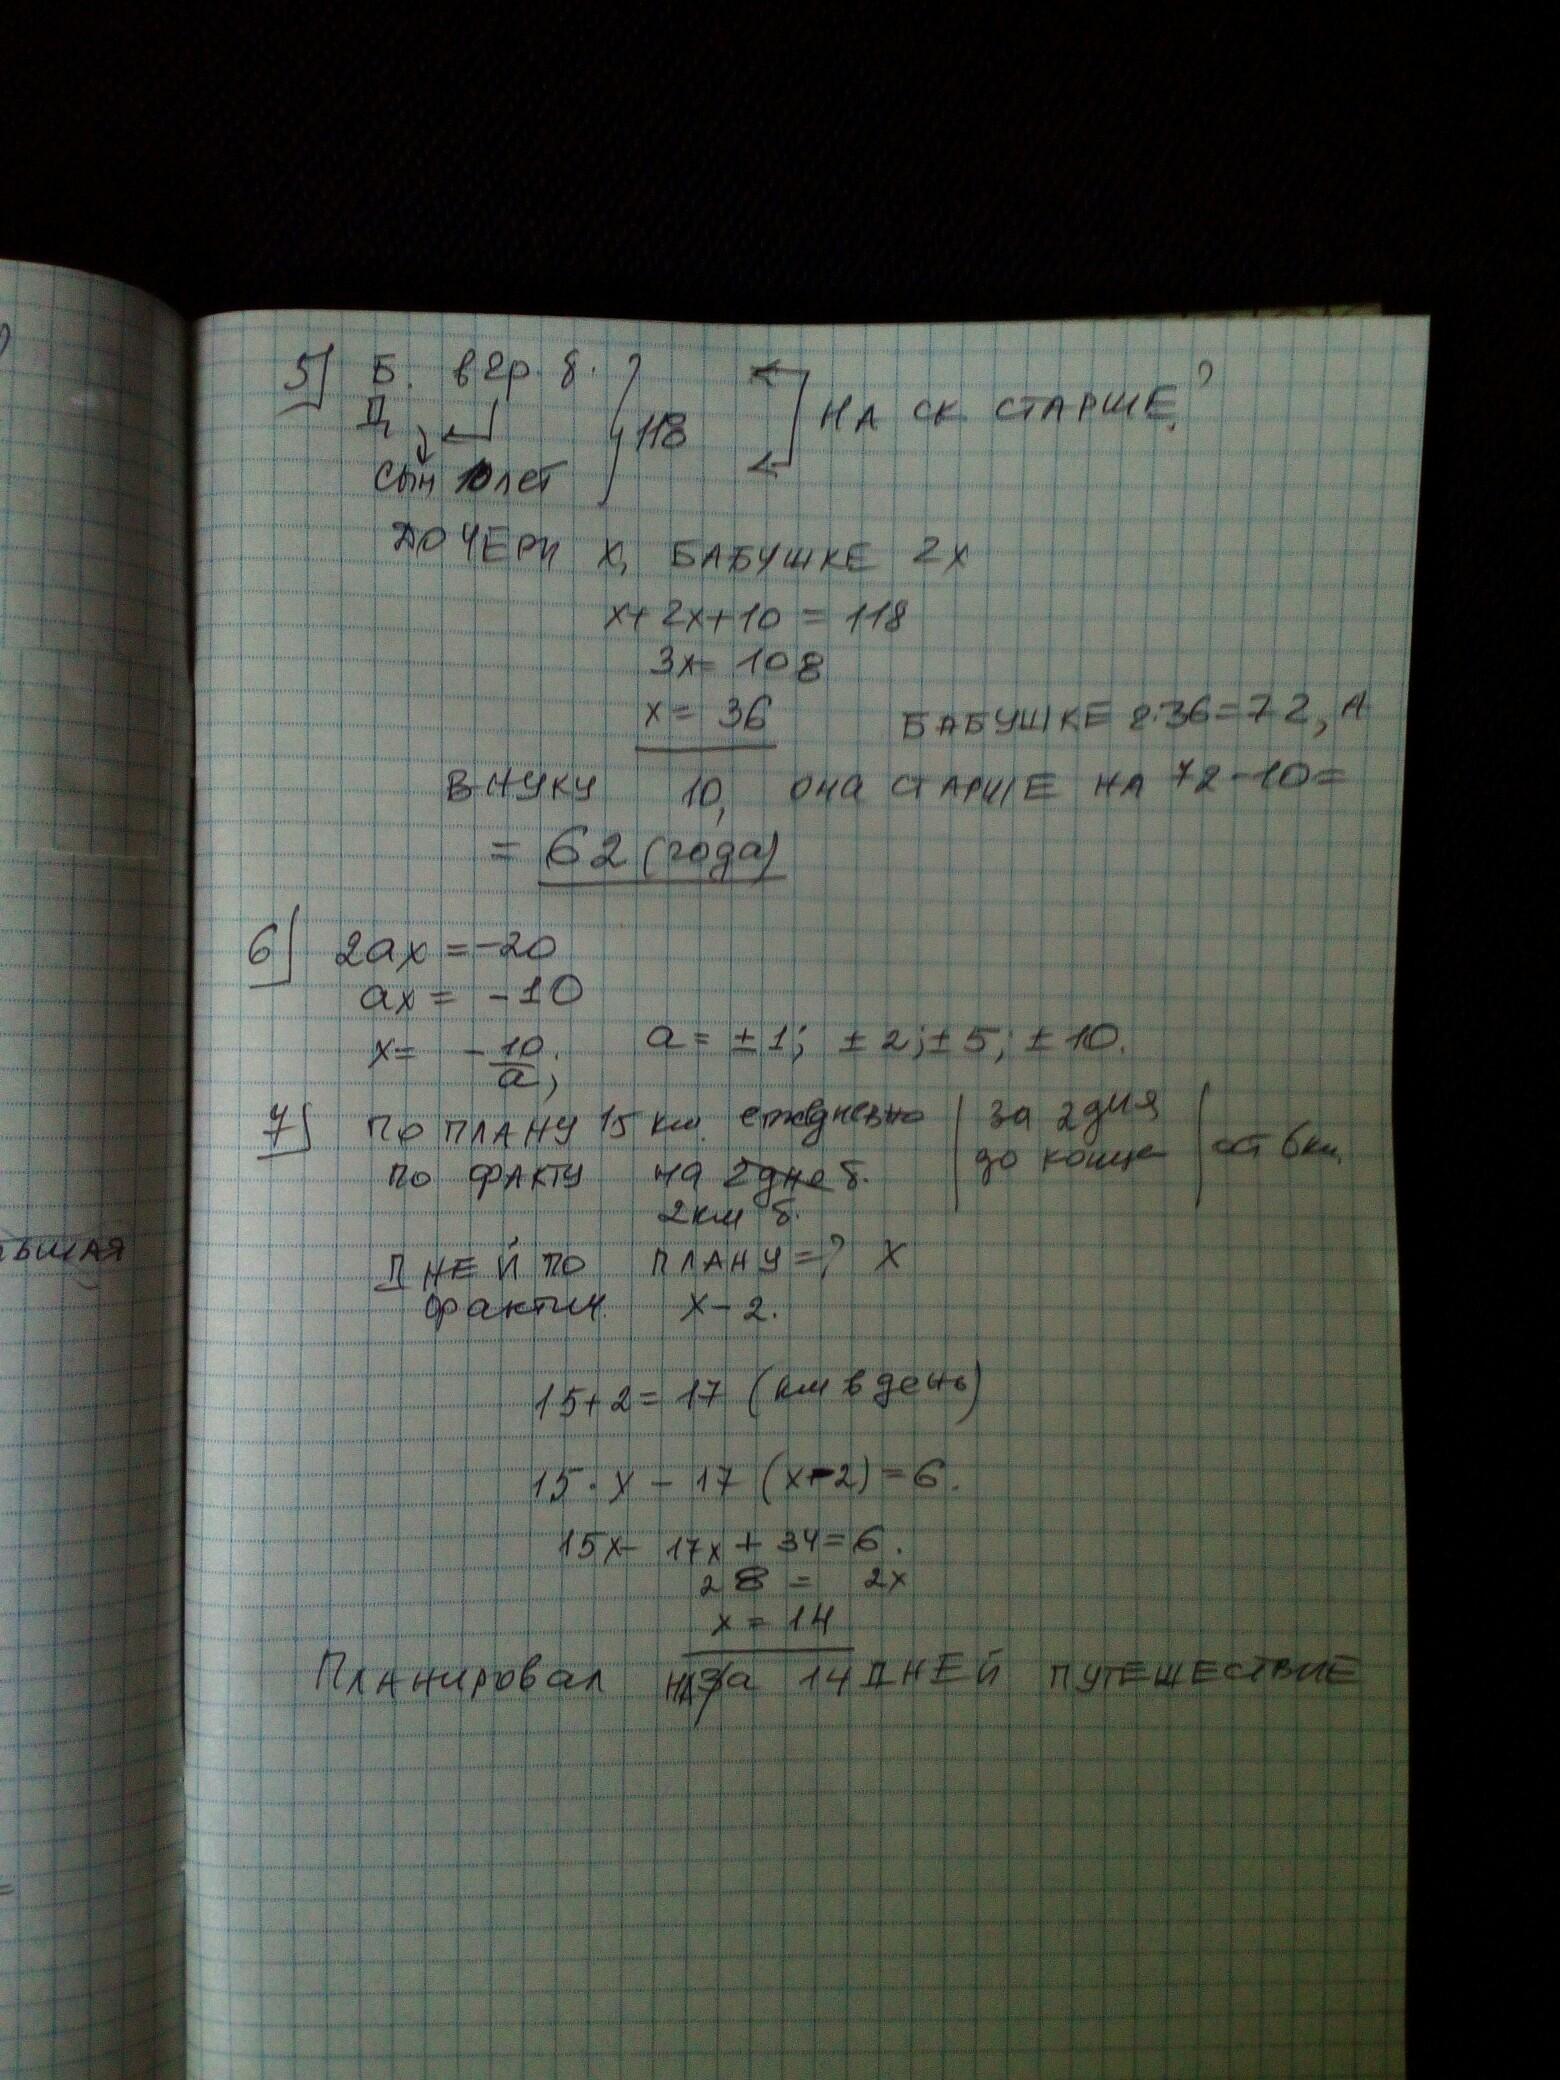 5) Б. в 2р. б.
Д. 118 НА СК СТАРШЕ?
Сын 10 лет
ДОЧЕРИ x, БАБУШКЕ 2x
x+2x+10=118
3x=108
x=36
БАБУШКЕ 2·36=72, А
ВНУКУ 10, она СТАРШЕ НА 72-10=
= 62 (года)
6) 2ax=-20
ax=-10
x=-10/a; a=±1; ±2; ±5; ±10.
7) ПО ПЛАНУ 15 км. ежедневно за 2 дня
до конца ост 6 км.
ПО ФАКТУ на 2дне б.
2км б.
ДНЕЙ ПО ПЛАНУ=? X
фактич. x-2.
15+2=17 (км в день)
15·x-17(x-2)=6.
15x-17x+34=6.
28=2x
x=14
Планировал на 14 ДНЕЙ ПУТЕШЕСТВИЕ
ьшая
=